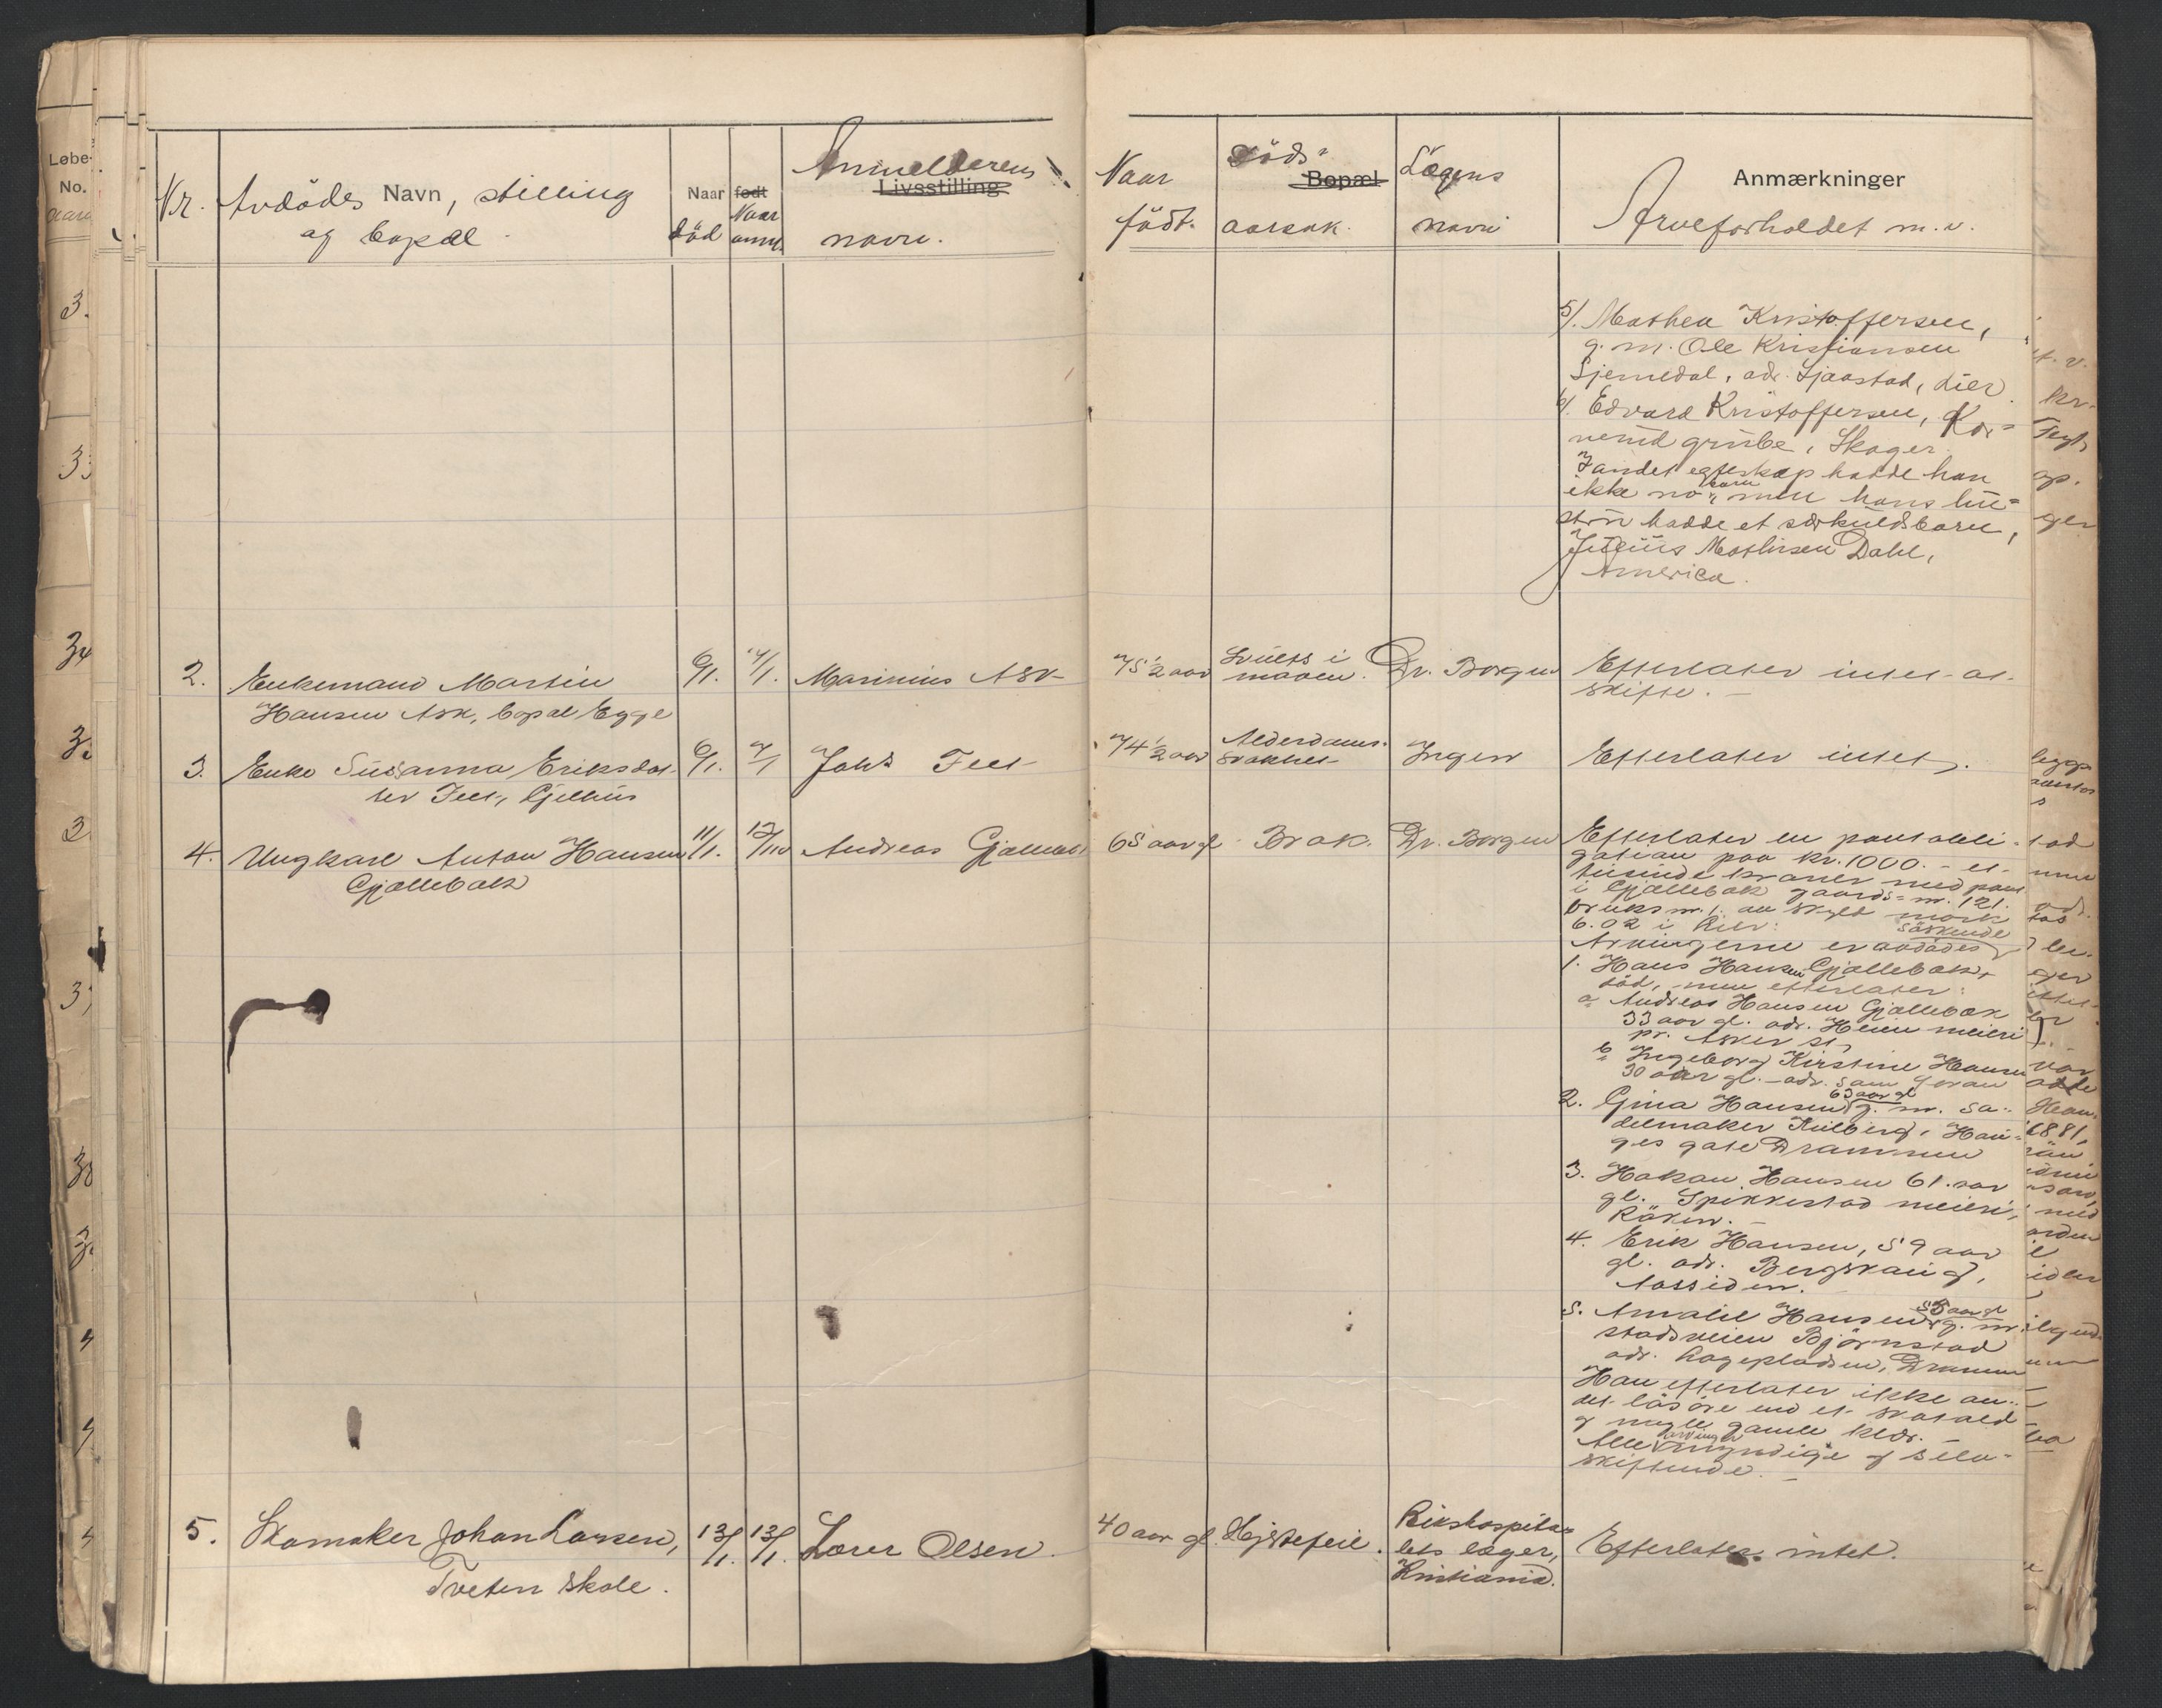 Nr.
Avdödes Navn, stilling
og bopæl
Naar
död
født
Naar
anm.
Anmelderens
Livsstilling
navn.
Naar
födt.
Döds-
Bopæl
aarsak.
Lægens
navn
Anmærkninger
Arveforholdet m.v.
5/. Mathea Kristoffersen,
g. m. Ole Kristiansen
Sjemedal, adr. Sjaastad, Lier.
6/. Edvard Kristoffersen, Kor-
verud grube, Skoger.
I andet egteskap hadde han
ikke no barn, men hans hu-
strü hadde et særkuldsbarn,
Juliüs Mathisen Dahl,
America.
2.
Enkemand Martin
Hansen Ask, bopæl Egge
6/1.
7/1.
Marinius Ask
75 1/2 aar
Svulst i
maven.
Dr. Borgen
Efterlater intet at
skifte. —
3.
Enke Susanna Eriksdat-
ter Feet, Gjelhus
6/1.
7/1
Johs Feet
74 1/2 aar
Alderdoms-
svakhet
Ingen
Efterlater intet.
4.
Ungkarl Anton Hansen
Gjællebæk
11/1.
12/1
Andreas Gjællebæk
65 aar gl
Brok.
Dr. Borgen
Efterlater en pantobli-
gation paa kr. 1000.- et-
tusende kroner med pant
i Gjællebæk gaards-nr. 121.
bruksnr. 1. av skyld mark
6.02 i Lier:
Arvingerne er avdødes söskende
1. Hans Hansen Gjællebæk,
död, men efterlater:
a Andreas Hansen Gjællebæk
33 aar gl. adr. Hlem meieri
pr. Asker st,
b Ingeborg Kirstine Hansen
30 aar gl. - adr. som foran
2. Gina Hansen 63 aar gl g. m. sa-
delmaker Kulberg, Hau-
ges gate Drammen
3. Hakan Hansen 61. aar
gl. Spikkestad meieri,
Röken. —
4. Erik Hansen, 59 aar
gl. adr. Bergsvang,
Aassiden.
5. Amalie Hansen 53 aar gl g. m.
stadsveien Björnstad
adr. Hageplodsen, Drammen
Han efterlater ikke an-
det lösöre end et skatold
og nogle gamle klær.
Alle arvinger myndige og selv-
skiftende. —
5.
Skomaker Johan Larsen,
Tveten skole.
13/1.
13/1.
Lærer Olsen.
40 aar gl.
Hjertefeil.
Rikshospita-
lets læger,
Kristiania.
Efterlater intet.
Løbe-
No.